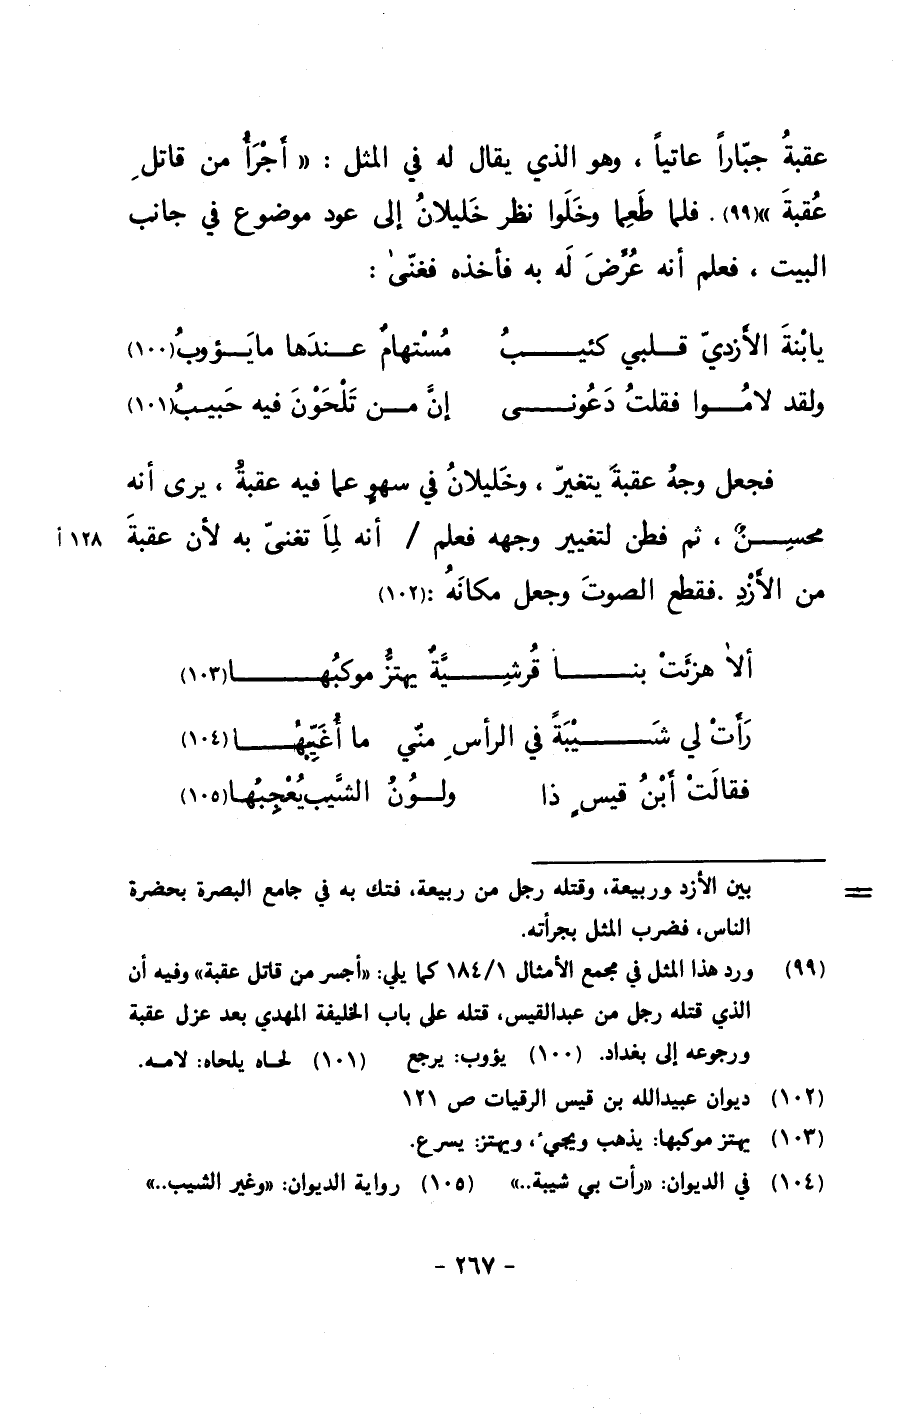 عقبةُ جبّاراً عاتياً ، وهو الذي يقال له في المثل : « أَجْرَأُ من قاتلِ
عُقبةَ »(٩٩) . فلما طَعِما وخَلَوا نظر خَليلانُ إلى عود موضوع في جانب
البيت ، فعلم أنه عُرِّضَ لَه به فأخذه فغنّىٰ :
يابْنةَ الأَزديّ قلبي كئيبُ مُسْتهامٌ عندَها مايَؤوبُ(١٠٠)
ولقد لامُوا فقلتُ دَعُونى إنَّ من تَلْحَوْنَ فيه حَبيبُ(١٠١)
فجعل وجهُ عقبةَ يتغيرّ ، وخَليلانُ في سهوٍ عما فيه عقبةُ ، يرى أنه
محسِنٌ ، ثم فطن لتغيير وجهه فعلم / أنه لِمَا تغنىّ به لأن عقبةَ ١٢٨ أ
من الأَزْدِ .فقطع الصوتَ وجعل مكانَهُ :(١٠٢)
ألاٰ هزئَتْ بنا قُرشِيَّةٌ يهتزُّ موكبُها(١٠٣)
رَأَتْ لي شَيْبَةً في الرأسِ منّي ما أُغَيِّبُها(١٠٤)
فقالَتْ أَبْنُ قيسٍ ذا ولونُ الشَّيب يُعْجِبُها(١٠٥)
= بين الأزد وربيعة، وقتله رجل من ربيعة، فتك به في جامع البصرة بحضرة
الناس، فضرب المثل بجرأته.
(٩٩) ورد هذا المثل في مجمع الأمثال ١/١٨٤ كما يلي: «أجسر من قاتل عقبة» وفيه أن
الذي قتله رجل من عبدالقيس، قتله على باب الخليفة المهدي بعد عزل عقبة
ورجوعه إلى بغداد. (١٠٠) يؤوب: يرجع (١٠١) لحاه يلحاه: لامه.
(١٠٢) ديوان عبيدالله بن قيس الرقيات ص ١٢١
(١٠٣) يهتز موكبها: يذهب ويجيء، ويهتز: يسرع.
(١٠٤) في الديوان: «رأت بي شيبة..» (١٠٥) رواية الديوان: «وغير الشيب..»
- ٢٦٧ -